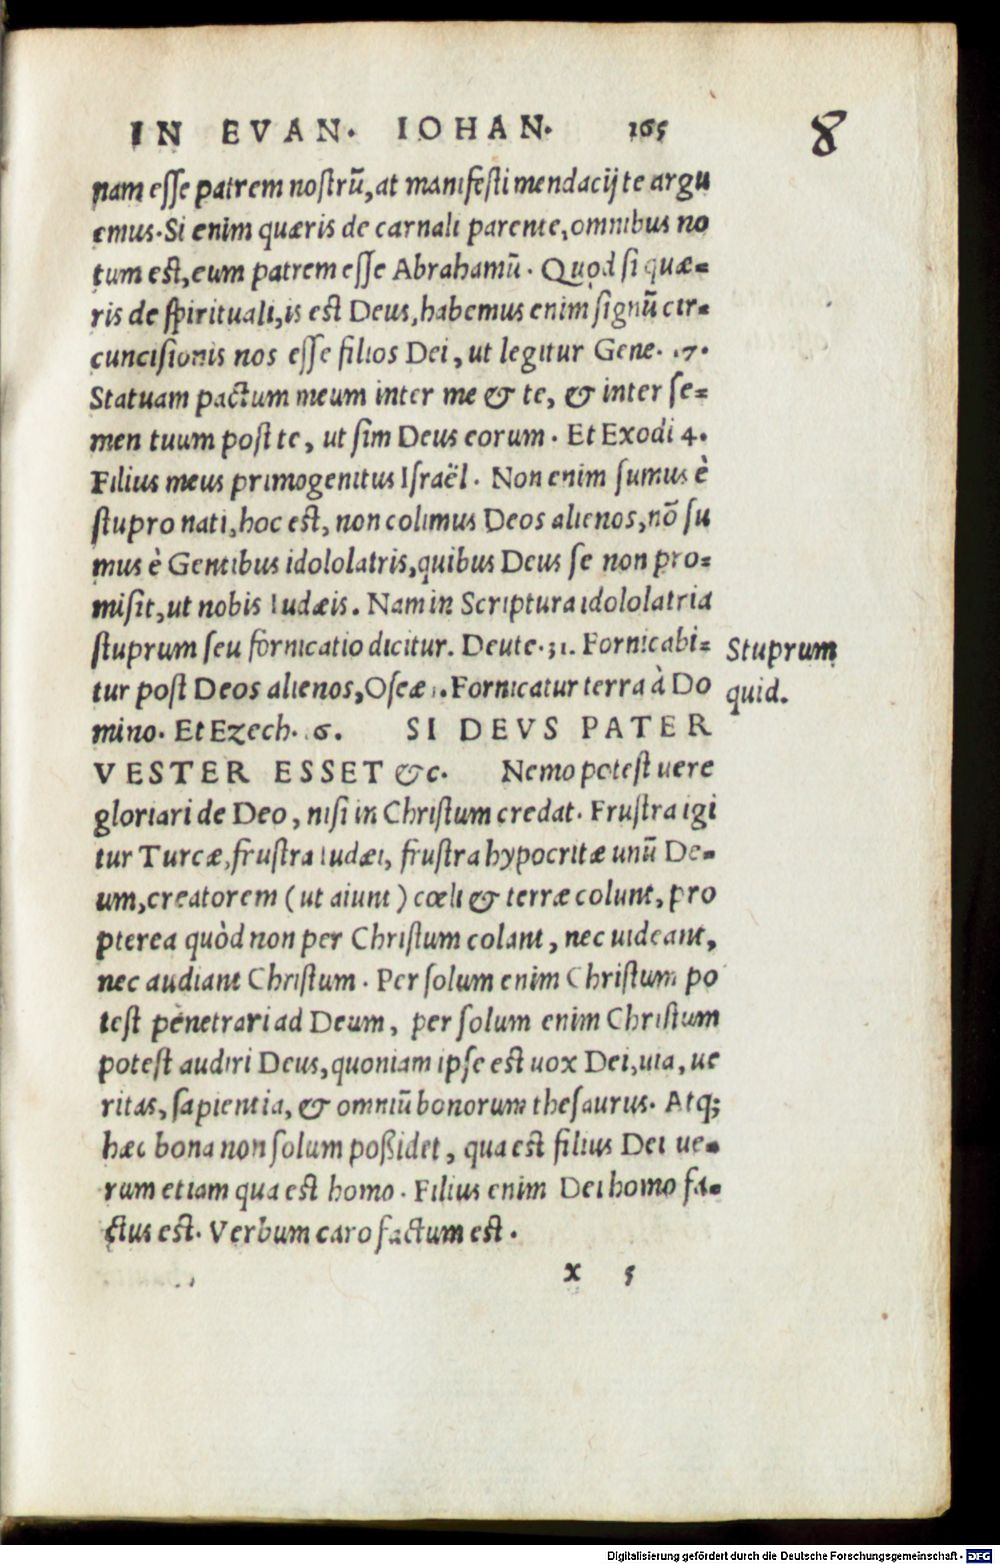 IN EVAN. IOHAN. 165
8
nam esse patrem nostrũ, at manifesti mendacij te argu
emus. Si enim quæris de carnali parente, omnibus no
tum est, eum patrem esse Abrahamũ. Quod si quæ=
ris de spirituali, is est Deus, habemus enim signũ cir=
cuncisionis nos esse filios Dei, ut legitur Gene. 17.
Statuam pactum meum inter me & te, & inter se=
men tuum post te, ut sim Deus eorum. Et Exodi 4.
Filius meus primogenitus Israël. Non enim sumus è
stupro nati, hoc est, non colimus Deos alienos, nõ su
mus è Gentibus idololatris, quibus Deus se non pro=
misit, ut nobis Iudæis. Nam in Scriptura idololatria
stuprum seu fornicatio dicitur. Deute. 31. Fornicabi=
Stuprum
tur post Deos alienos, Oseæ 1. Fornicatur terra à Do
quid.
mino. Et Ezech. 6. SI DEVS PATER
VESTER ESSET &c. Nemo potest uere
gloriari de Deo, nisi in Christum credat. Frustra igi
tur Turcæ, frustra Iudæi, frustra hypocritæ unũ De=
um, creatorem (ut aiunt) cœli & terræ colunt, pro
pterea quòd non per Christum colant, nec uideant,
nec audiant Christum. Per solum enim Christum po
test penetrari ad Deum, per solum enim Christum
potest audiri Deus, quoniam ipse est uox Dei, uia, ue
ritas, sapientia, & omniũ bonorum thesaurus. Atq;
hæc bona non solum poßidet, qua est filius Dei ue=
rum etiam qua est homo. Filius enim Dei homo fa=
ctus est. Verbum caro factum est.
x 5
Digitalisierung gefördert durch die Deutsche Forschungsgemeinschaft - DFG